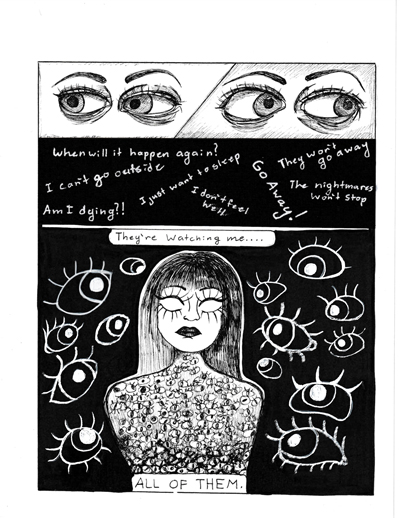 When will it happen again?
I can't go outside
Am I dying?!
I just want to sleep
I don't feel
well.
Go Away!
They won't
go away
The nightmares
won't stop
They're watching me....
ALL OF THEM.